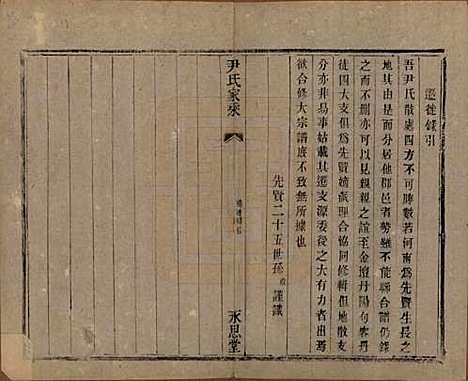 遷徙錄引
吾尹氏散處四方不可勝數若河南為先賢生長之
地其由而分居他郡邑者勢雖不能聯合譜仍錄
之而不刪亦可以見親親之誼至金壇丹陽句容丹
徒四大支俱為先賢嫡派理合協同修輯但地散支
分亦非易事姑載其遷支源委後之大有力者出焉
欲合修大宗譜庶不致無所據也
先賢二十五世孫 謹識
尹氏家乘
永思堂